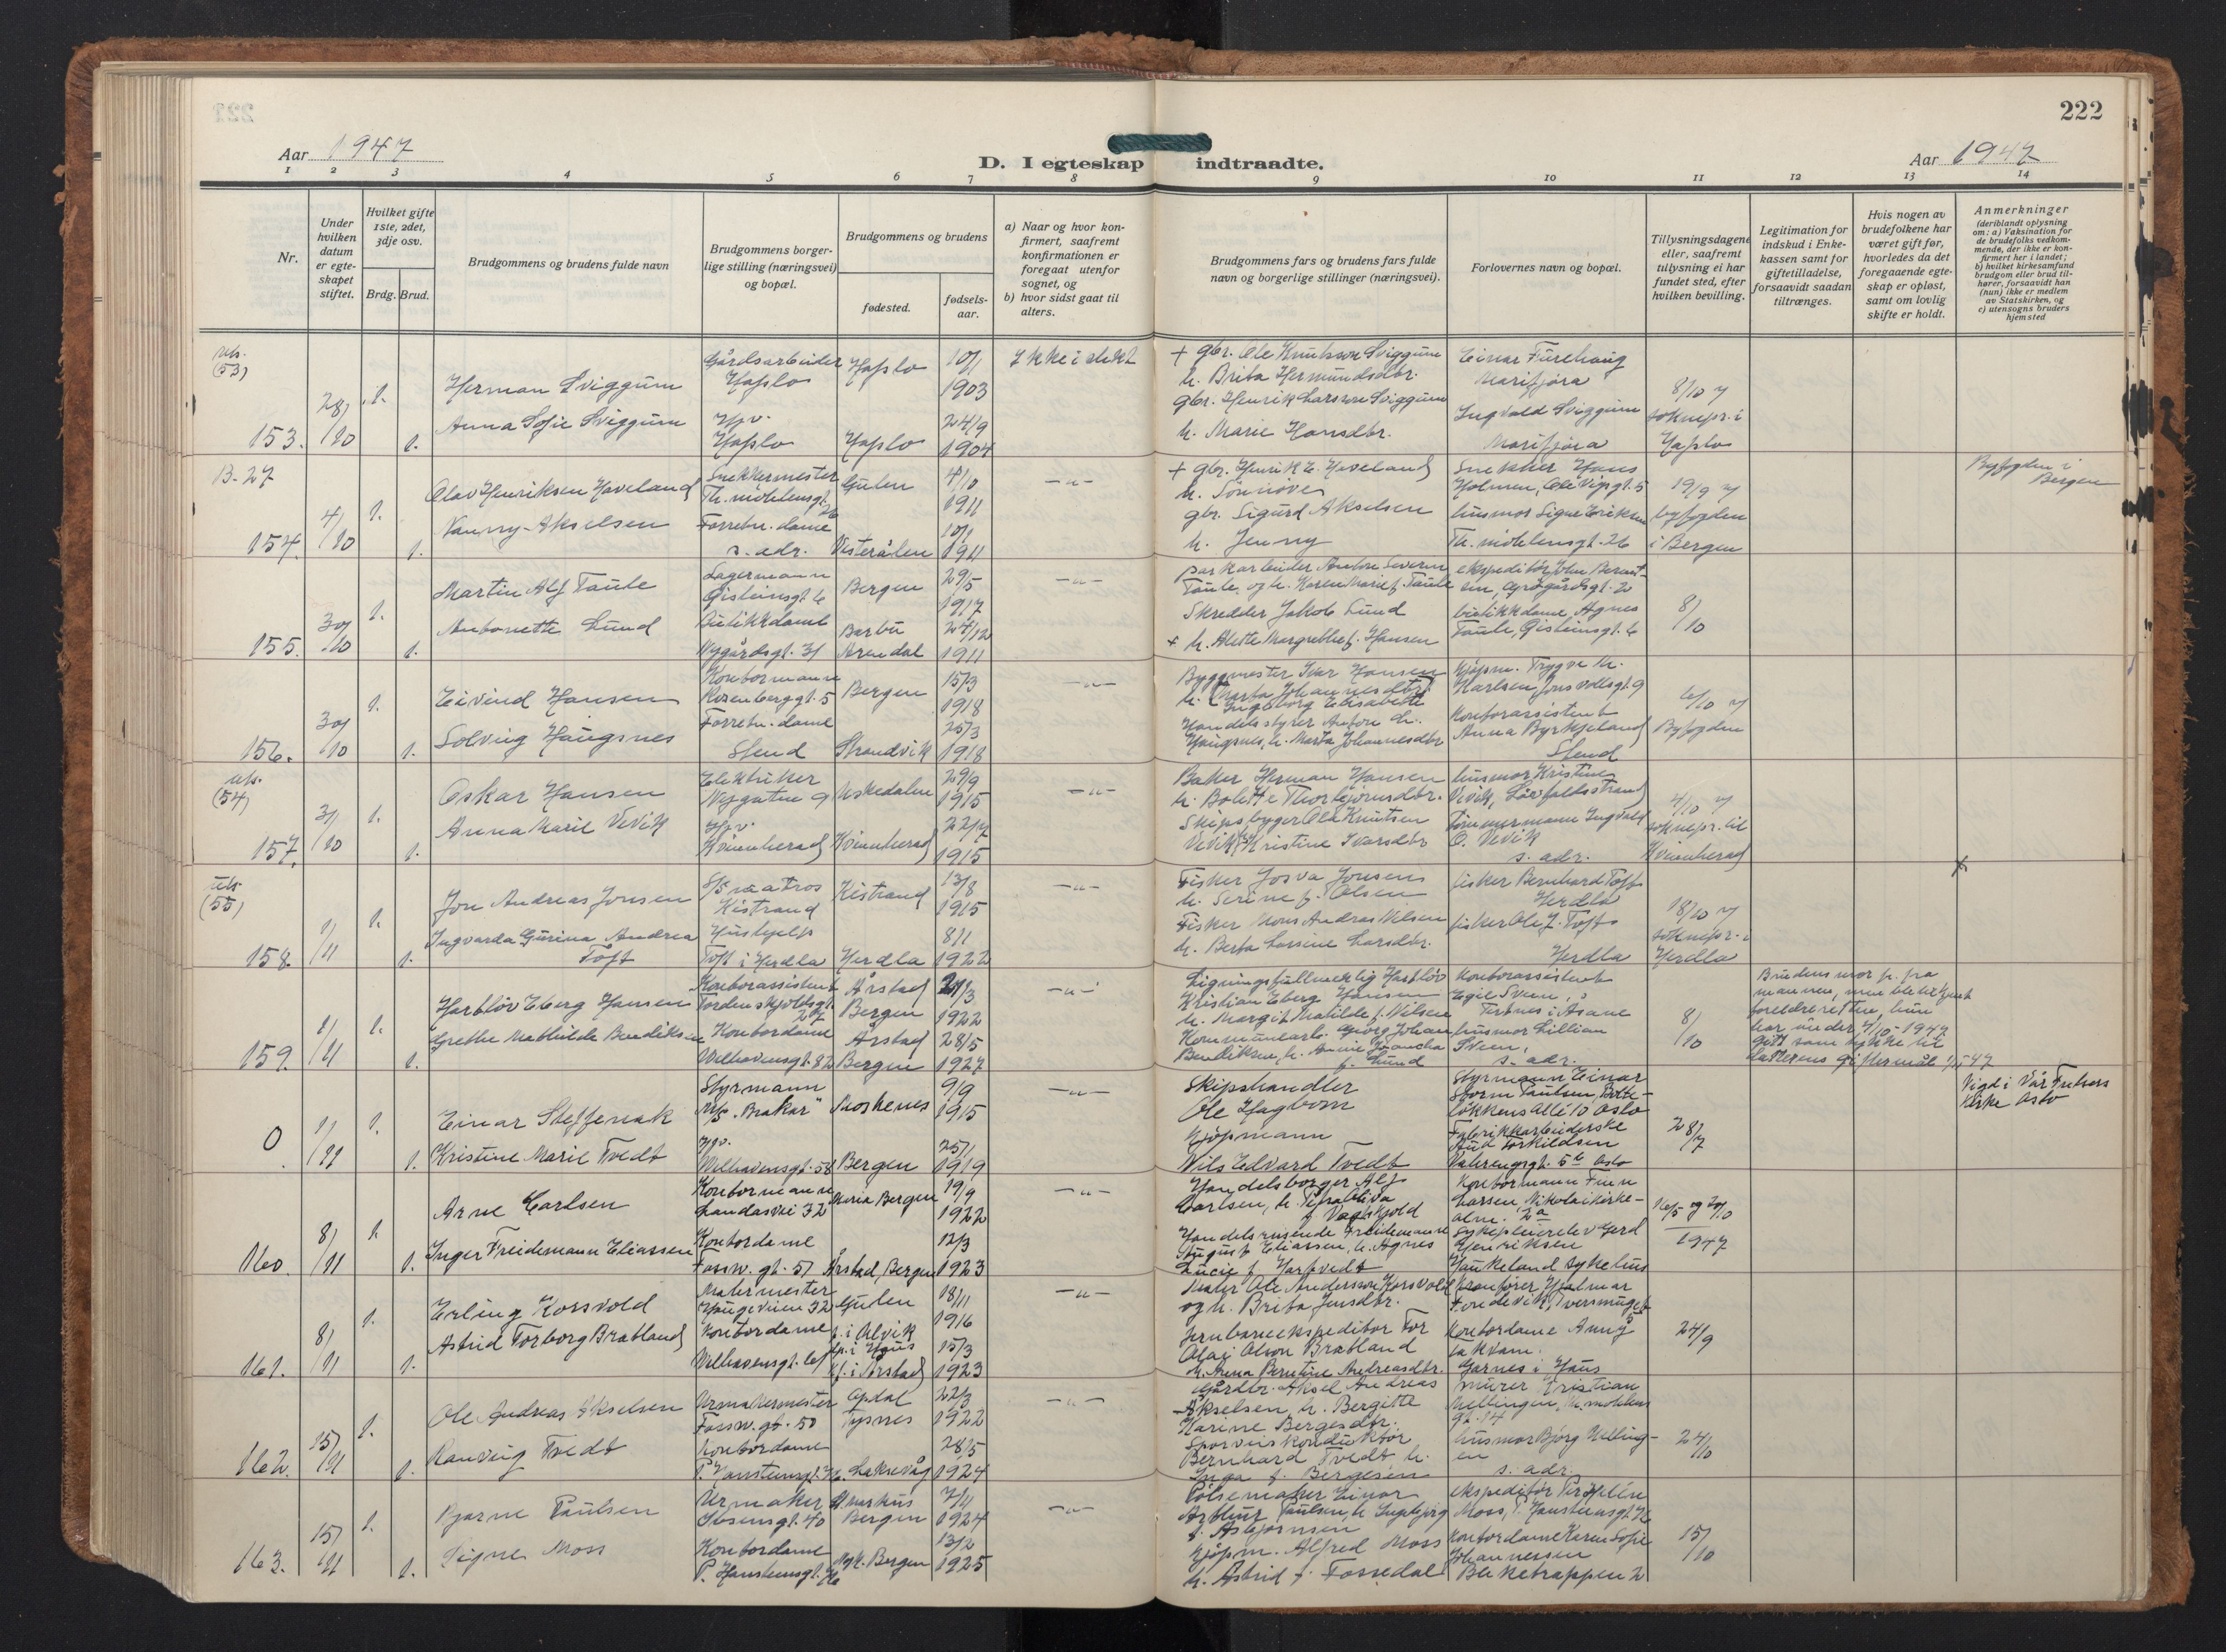 222
Aar 1947
D. I egteskap indtraadte.
Aar 1947
1 2 3 4 5 6 7 8 9 10 11 12 13 14
Nr.
Under hvilken datum er egteskapet stiftet.
Hvilket gifte 1ste, 2det, 3dje osv.
Brdg. Brud.
Brudgommens og brudens fulde navn
Brudgommens borgerlige stilling (næringsvei) og bopæl.
Brudgommens og brudens
fødested.
fødselsaar.
a) Naar og hvor konfirmert, saafremt konfirmationen er foregaat utenfor sognet, og
b) hvor sidst gaat til alters.
Brudgommens fars og brudens fars fulde navn og borgerlige stillinger (næringsvei).
Forlovernes navn og bopæl.
Tillysningsdagene eller, saafremt tillysning ei har fundet sted, efter hvilken bevilling.
Legitimation for indskud i Enkekassen samt for giftetilladelse, forsaavidt saadan tiltrænges.
Hvis nogen av brudefolkene har været gift før, hvorledes da det foregaaende egteskap er opløst, samt om lovlig skifte er holdt.
Anmerkninger
(deriblandt oplysning om: a) Vaksination for de brudefolks vedkommende, der ikke er konfirmert her i landet;
b) hvilket kirkesamfund brudgom eller brud tilhører, forsaavidt han (hun) ikke er medlem av Statskirken, og
c) utensogns bruders hjemsted
uts. (53)
153. 28/10 1. 1.
Herman Sviggum
Gårdsarbeider Hafslo
Hafslo
10/1 1903
Ikke i slekt
+ gbr. Ole Knutsson Sviggum
h. Brita Hermundsdtr.
Einar Furehaug
Marifjøra
Anna Sofie Sviggum
Hjv. Hafslo
Hafslo
24/9 1904
gbr. Henrik Larsson Sviggum
h. Marie Hansdtr.
Ingvald Sviggum
Marifjøra
8/10 soknepr. i Hafslo
B. 27
154. 4/10 1. 1.
Olav Henriksen Haveland
Snekkermester
Th. møhlensgt. 26
Gulen
4/10 1911
-"-
+ gbr. Henrik E. Haveland
h. Sönnöve
Snekker Hans Holmen, Ole Vigsgt. 5
Vanny Akselsen
Forretn. dame
s. adr.
Vesterålen
10/1 1911
gbr. Sigurd Akselsen
h. Jenny
husmor Signe Eriksen
Th. møhlensgt. 26
19/9 byfogden i Bergen
Byfogden i Bergen
155. 30/10 1. 1.
Martin Alf Taule
Lagermann
Gisteinsgt. 6
Bergen
29/5 1917
-"-
Antonette Lund
Butikkdame
Nygårdsgt. 31
Barbu Arendal
24/12 1911
Skredder Jakob Lund
+ h. Alette Margrethe f. Hansen
butikkdame Agnes
Taule, Gisteinsgt. 6
8/10
156. 30/10 1. 1.
Eivind Hansen
Kontormann
Rosenberggt. 5
Bergen
15/3 1918
-"-
Byggmester Ivar Hansen
Ingeborg Elisabeth
Kjøpm. Trygve M.
Karlsen, Jonsvollsgt. 9
Solveig Haugsnes
Forretn. dame
Stend
Strandvik
25/3 1918
Handelsstyrer Anton
Haugsnes, h. Marta Johannesdtr
Kontorassistent
Anna Byrkjeland
Stend
6/10 Byfogden
uts. (54)
157. 31/10 1. 1.
Oskar Hansen
Elektriker
Nygaten 9
Uskedalen
29/9 1915
-"-
Baker Herman Hansen
h. Bolette Thorbjörnsdtr.
husmor Kristine
Vevik
Anna Marie Vevik
Hjv. Kvinnherad
Kvinnherad
22/7 1915
Skipsbyger Ola Knutsen
Vevik, h. Kristine Ivarsdtr
Tömmermann Ingvald
O. Vevik
s. adr.
4/10 soknepr. til Kvinnherad
uts. (55)
158. 1/11 1. 1.
Jon Andreas Jonsen
matros
Kistrand
Kistrand
13/8 1915
-"-
Fisker Josva Jonsen
h. Serine f. Olsen
fisker Bernhard Toft
Herdla
Ingvarda Gurina Andrea Toft
Hushjelp
Toft i Herdla
Herdla
8/1 1922
Fisker Mons Andreas Nilsen
h. Berta Larsine Larsdtr.
fisker Ole J. Toft
Herdla
18/10 soknepr. i Herdla
x
159. 1/11 1. 1.
Hartløv Eberg Hansen
Kontorassistent
Tordenskjoldsgt.
Årstad Bergen
21/3 1922
-"-
Ligningsfullmektig Hartløv
Kristian Eberg Hansen
h. Margit Matilde f. Nilsen
Kontorassistent
Egil Sveen,
Tertnes i Åsane
Grethe Mathilde Bendiksen
Kontordame
Welhavensgt. 82
Årstad Bergen
28/5 1927
Kommunearb. Georg Johan
Bendiksen, h. Annie
f. Lund
husmor Lillian
Sveen,
s. adr.
8/10
Brudens mor
foreldreretten, hun
har under 4/10-1947
gitt samtykke til
datterens giftermål
0 1/11 1. 1.
Einar Steffenak
Styrmann
M/S "Brakar"
Moskenes
9/9 1915
-"-
Skipshandler
Ole Hagbom
Styrmann Einar
Storm Paulsen, Bolteløkkens Allé 10 Oslo
Kristine Marie Tvedt
Hjv.
Welhavensgt. 58
Bergen
25/1 1919
Kjöpmann
Nils Edvard Tvedt
Fabrikkarbeiderske
Aud Torkildsen
Oslo
28/7
Vigd i Vår Frelsers
Kirke Oslo
160. 8/11 1. 1.
Arne Carlsen
Kontormann
Landåsvei 32
Maria Bergen
19/9 1922
-"-
Handelsborger Alf
Carlsen
Kontormann Finn
Larsen, Nikolaikirkealm. 2a
Inger Freidemann Eliassen
Kontordame
Fossw. gt. 51
Årstad, Bergen
12/3 1923
Handelsreisende Freidemann
August Eliassen, h. Agnes
Lucie f. Hartvedt
Sykepleierelev Gerd
Henriksen
Haukeland sykehus
16/5 og 20/10 1947
161. 8/11 1. 1.
Erling Kossvold
Malermester
Haugeveien 32
Gulen
18/11 1916
-"-
Maler Ole Anderssen Kossvold
og h. Brita Jensdtr.
Hjalmar
Astrid Torborg Bratland
Kontordame
Welhavensgt. 61
f. i Ulvik
dp. i Haus
kf. i Årstad
15/3 1923
Jernbaneekspeditør Tor
Olai Olson Bratland
h. Anna Berntine Andreasdtr.
Kontordame Anny
Garnes i Haus
24/9
162. 15/11 1. 1.
Ole Andreas Akselsen
Urmakermester
Fossw. gt. 50
Opdal Tysnes
22/3 1922
-"-
Gårdbr. Aksel Andreas
Akselsen, h. Bergitte
Karine Bergesdtr.
murer Kristian
Mellingen
gt. 14
Ranveig Tvedt
Kontordame
P. Hansteensgt. 76
Laksevåg
28/5 1924
Sporveiskonduktør
Bernhard Tvedt h.
Inga f. Bergesen
husmor Bjørg Mellingen
s. adr.
24/10
163. 15/11 1. 1.
Bjarne Paulsen
Urmaker
Ibsensgt. 40
St. markus Bergen
7/4 1924
-"-
Pölsemaker Einar
Arthur Paulsen, h. Ingebjørg
f. Asbjørnsen
ekspeditør
Moss, P. Hansteensgt. 76
Signe Moss
Kontordame
P. Hansteensgt. 76
Nyk. Bergen
13/2 1925
Kjöpm. Alfred Moss
h. Astrid f. Fossedal
Kontordame Karen Sofie
Johannessen
Bleketrappen 2
15/10